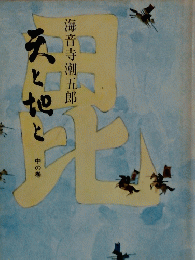 海音寺潮五郎
天と地と
中の巻
毘